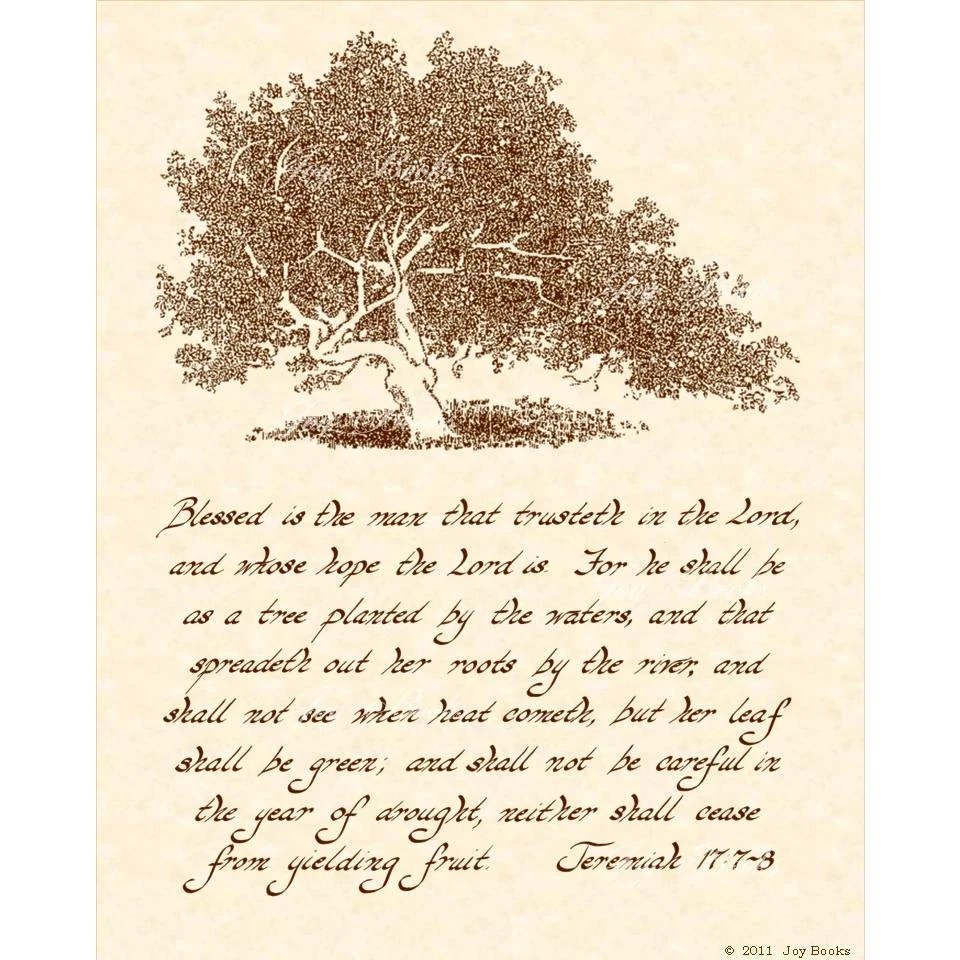 Joy Books
Blessed is the man that trusteth in the Lord,
and whose hope the Lord is. For he shall be
as a tree planted by the waters, and that
spreadeth out her roots by the river, and
shall not see when heat cometh, but her leaf
shall be green; and shall not be careful in
the year of drought, neither shall cease
from yielding fruit. Jeremiah 17:7~8
© 2011 Joy Books